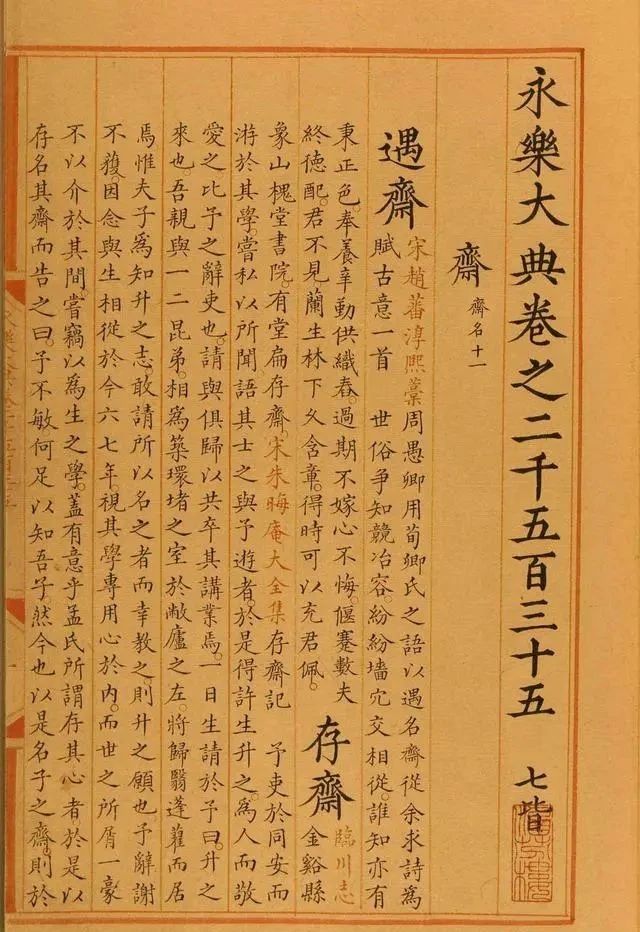 永樂大典卷之二千五百三十五 七皆
齋 齋名十一
遇齋 宋趙蕃淳熙藁周愚卿用荀卿氏之語以遇名齋從余求詩爲
賦古意一首 世俗爭知競冶容紛紛墻穴交相從誰知亦有
秉正色。奉養辛勤供織舂。過期不嫁心不悔。偃蹇數夫
終徳配。君不見蘭生林下久含章。得時可以充君佩。
存齋 臨川志
金谿縣
象山槐堂書院。有堂扁存齋。宋朱晦庵大全集存齋記 予吏於同安而
游於其學。嘗私以所聞語其士之與予遊者。於是得許生升之爲人而敬
愛之。比予之辭吏也。請與俱歸。以共卒其講業焉。一日生請於予曰。升之
來也。吾親與一二昆弟。相爲築環堵之室於敝廬之左。將歸翳蓬藋而居
焉。惟夫子爲知升之志。敢請所以名之者而幸教之。則升之願也。予辭謝
不獲。因念與生相從於今六七年。視其學專用心於内。而世之所屑。一豪
不以介於其間。嘗竊以爲生之學。蓋有意乎孟氏所謂存其心者。於是以
存名其齋而告之曰。予不敏何足以知吾子。然今也以是名子之齋。則於